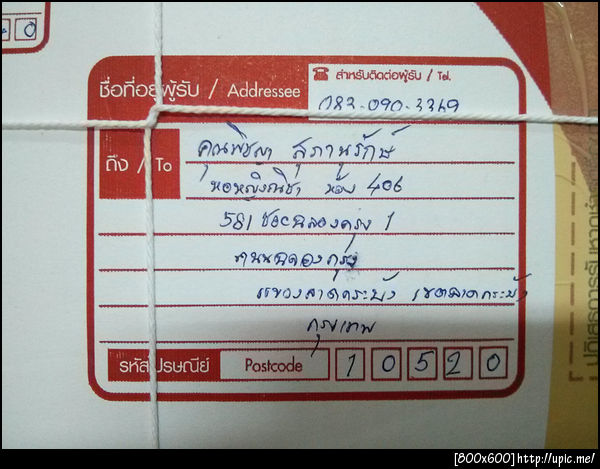 ชื่อที่อยู่ผู้รับ / Addressee
สำหรับติดต่อผู้รับ / Tel.
083-090-3369
ถึง / To
คุณพิชญา สุภานุรักษ์
หอหญิงณิชา ห้อง 406
581 ซอยฉลองกรุง 1
ถนนฉลองกรุง
แขวงลาดกระบัง เขตลาดกระบัง
กรุงเทพ
รหัสไปรษณีย์ Postcode 10520
[800x600]http://upic.me/